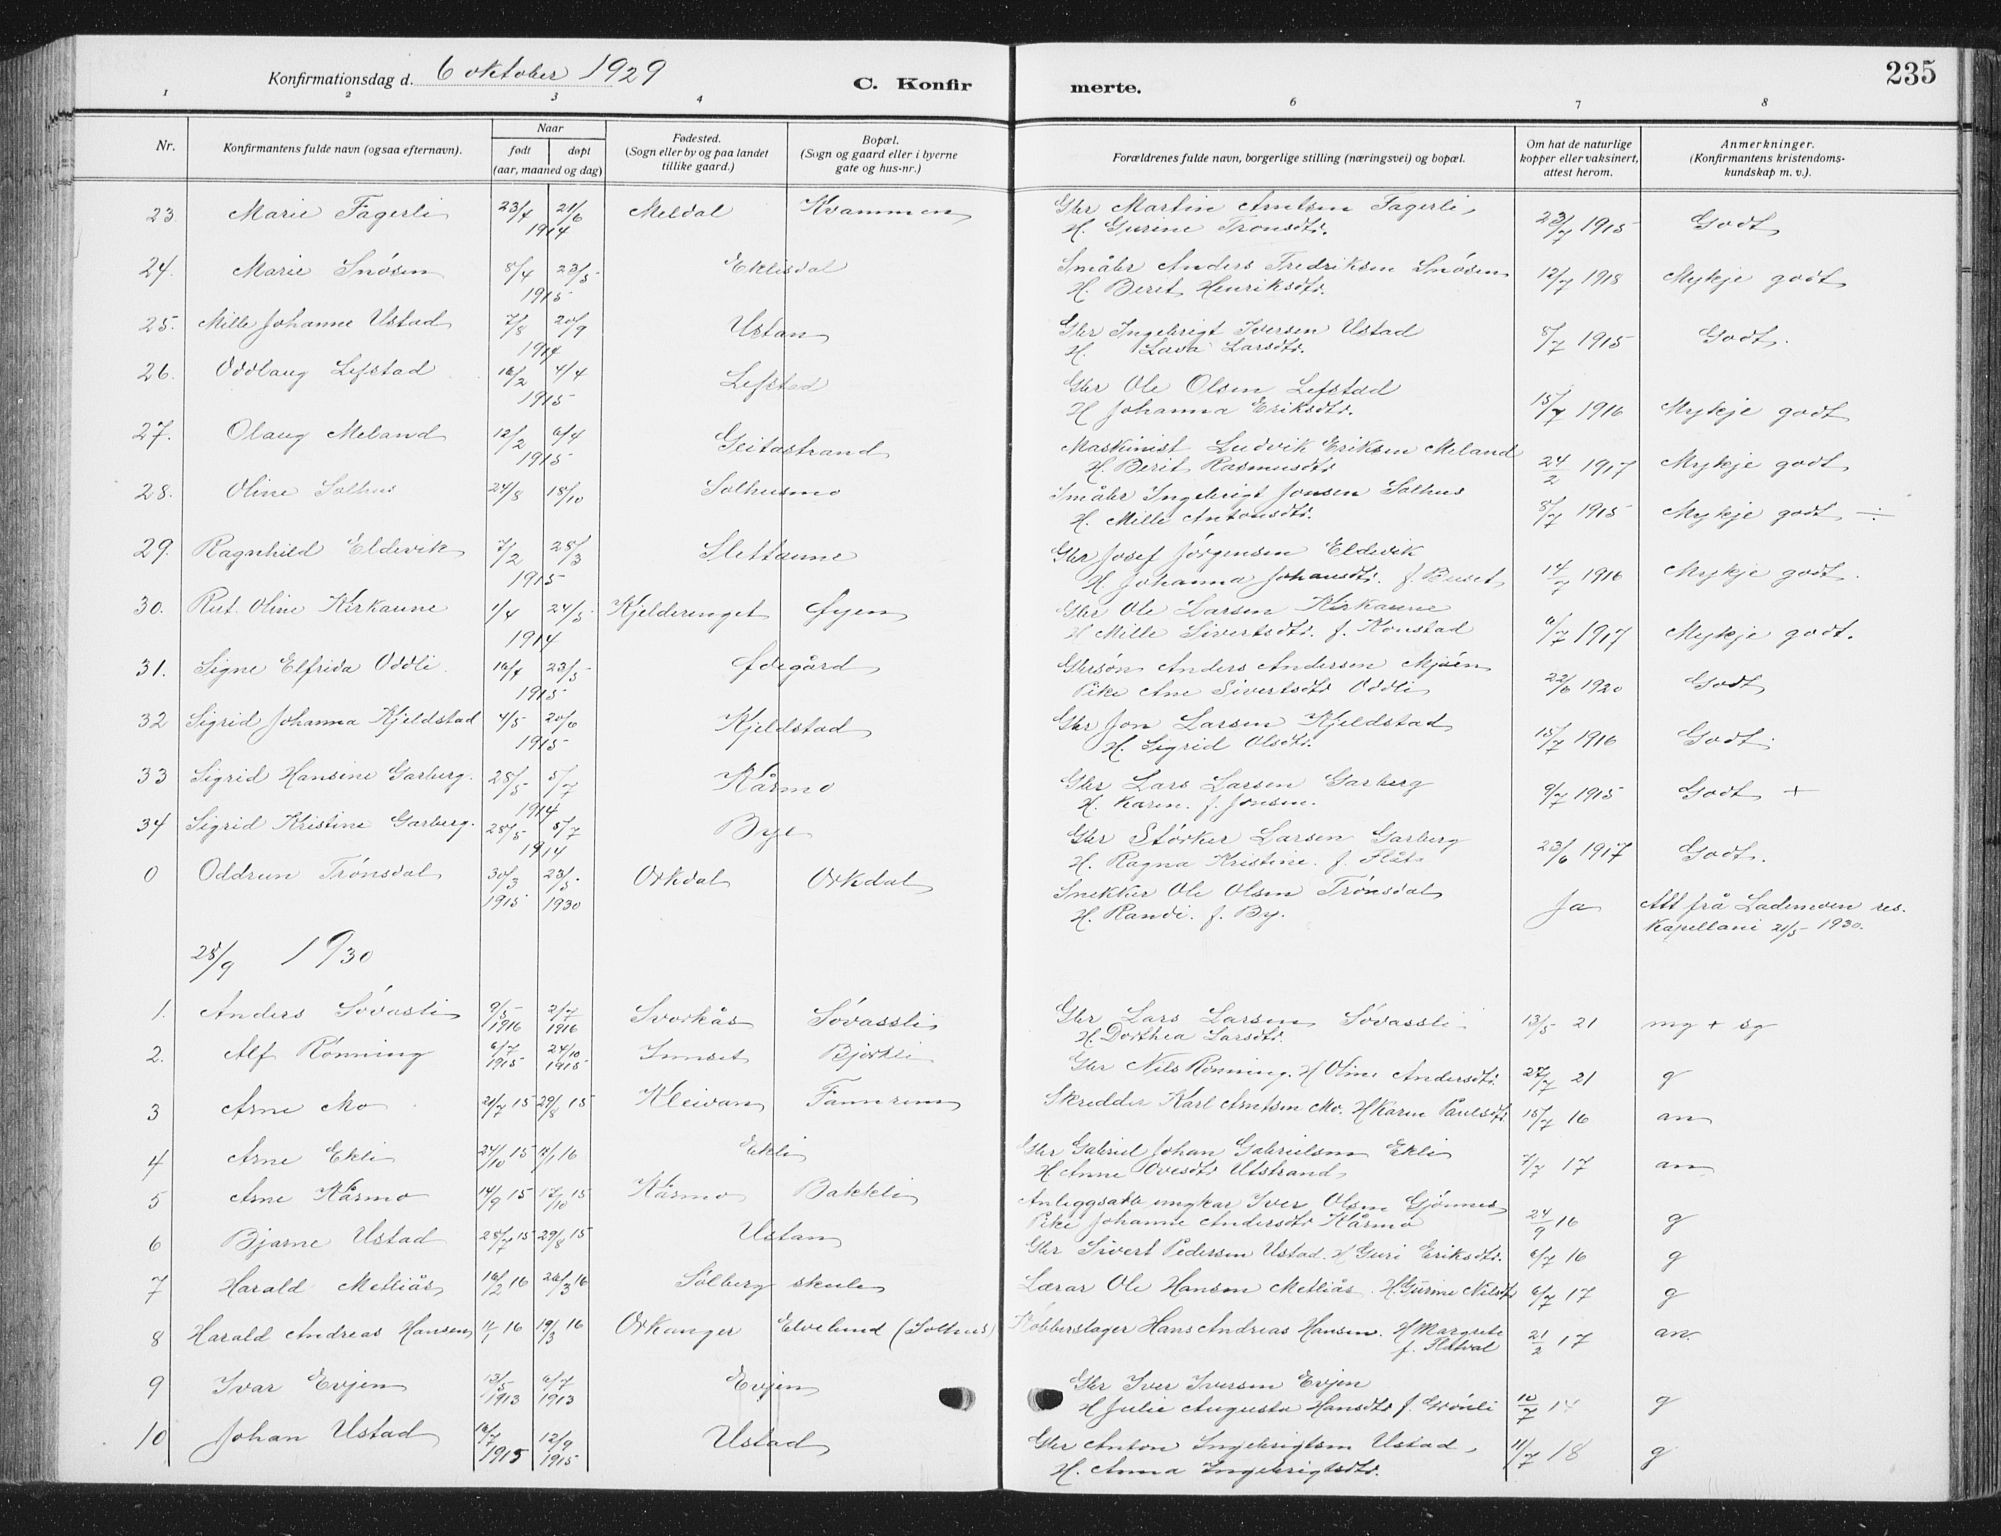 Konfirmationsdag d. 6 oktober 1929 C. Konfir merte. 235
1 2 3 4 6 7 8
Nr. Konfirmantens fulde navn (ogsaa efternavn). Naar født døpt (aar, maaned og dag) Fødested. (Sogn eller by og paa landet tillike gaard.) Bopæl. (Sogn og gaard eller i byerne gate og hus-nr.) Forældrenes fulde navn, borgerlige stilling (næringsvei) og bopæl. Om hat de naturlige kopper eller vaksinert, attest herom. Anmerkninger. (Konfirmantens kristendomskundskap m. v.).
23. Marie Fagerli 23/4 21/6 1914 Meldal Kvammen Gbr Martin Arntsen Fagerli, H. Gurine Tronsdtr. 23/7 1915 Godt
24. Marie Snøsen 8/4 23/5 1915 Eklisdal Småbr Anders Fredriksen Snøsen H. Berit Henriksdtr. 12/7 1918 Mykje godt
25. Mille Johanne Ustad 7/8 20/9 1914 Ustan Gbr Ingebrigt Iversen Ustad H. Lava Larsdtr. 8/7 1915 Godt.
26. Oddlaug Lefstad 16/2 4/4 1915 Lefstad Gbr Ole Olsen Lefstad H Johanna Eriksdtr. 15/7 1916 Mykje godt
27. Olaug Meland 12/2 6/4 1915 Geitastrand Maskinist Ludvik Eriksen Meland H. Berit Rasmusdtr 24/2 1917 Mykje godt
28. Oline Solhus 24/8 18/10 Solhusmo Småbr Ingebrigt Jonsen Solhus H. Mille Antonsdtr. 8/7 1915 Mykje godt ÷
29. Ragnhild Eldevik 7/2 28/3 1915 Slettaune Gbr Josef Jørgensen Eldevik H Johanna Johansdtr. f. Buset 14/7 1916 Mykje godt.
30. Rut Oline Kirkaune 1/4 24/5 1914 Kjelderenget Øyen Gbr Ole Larsen Kirkaune H Mille Sivertsdtr. f. Konstad 6/7 1917 Mykje godt.
31. Signe Elfrida Oddli 16/4 23/5 1915 Ødegård Gbrsøn Anders Andersen Mjøen Pike Ane Sivertsdtr Oddli 22/6 1920 Godt
32 Sigrid Johanna Kjeldstad 4/5 20/6 1915 Kjeldstad Gbr Jon Larsen Kjeldstad H. Sigrid Olsdtr. 15/7 1916 Godt.
33 Sigrid Hansine Garberg. 28/5 5/7 1914 Kårmo Gbr Lars Larsen Garberg H. Karen. f. Jonsen. 9/7 1915 Godt +
34 Sigrid Kristine Garberg. 28/5 5/7 1914 Bye Gbr Størker Larsen Garberg H. Ragna Kristine. f. Flåt 23/6 1917 Godt.
0 Oddrun Trønsdal 30/3 1915 23/5 1930 Orkdal Orkdal Snekker Ole Olsen Trønsdal H. Randi. f. By. Ja Att frå Lademoen res. kapellani 21/5 1930.
28/9 1930
1. Anders Søvasli 9/5 1916 2/7 1916 Svorkås Søvassli Gbr Lars Larsen Søvassli H. Dorthea Larsdtr. 13/5 21 mg + sg
2. Alf Rønning 6/7 1915 24/10 1915 Innset Bjørkli Gbr Nils Rønning. H Oline Andersdtr. 27/7 21 g
3 Arne Mo 21/7 15 29/8 15 Kleivan Fannrem Skredder Karl Arntsen Mo. H Karen Paulsdtr 15/7 16 an
4 Arne Ekli 24/10 15 1/1 16 Ekli Gbr Gabriel Johan Gabrielsen Ekli H Anne Ovesdtr Utstrand 7/7 17 an
5 Arne Kårmo 14/9 15 17/10 15 Kårmo Bakkeli Anleggsarb ungkar Iver Olsen Gjønnes Pike Johanne Andersdtr Kårmo 24/9 16 g
6 Bjarne Ustad 28/7 15 29/8 15 Ustan Gbr Sivert Pedersen Ustad. H Guri Eriksdtr. 6/7 16 g
7 Harald Metliås 16/2 16 26/3 16 Solberg skule Lærar Ole Hansen Metliås. H. Gurine Nilsdtr 6/7 17 g
8 Harald Andreas Hansen 11/1 16 19/3 16 Orkanger Elvelund (Solhus) Kobberslager Hans Andreas Hansen. H Margrete f. Flatval 21/2 17 an.
9 Ivar Evjen 13/5 1913 6/7 1913 Evjen Gbr Iver Iversen Evjen H Julie Augusta Hansdtr f. Grønli 10/7 14 g
10 Johan Ustad 16/7 1915 12/9 1915 Ustad Gbr Anton Ingebrigtsen Ustad, H. Anna Ingebrigtsdtr. 11/7 18 g